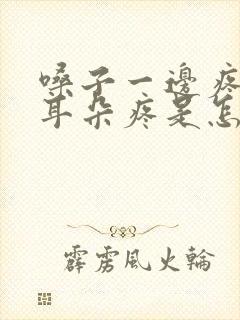 嗓子一邊疼
耳朵疼是怎
霹雳風火輪